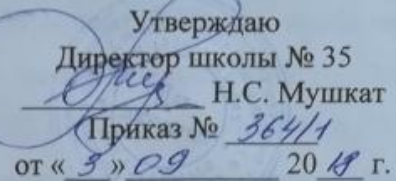 Утверждаю
Директор школы № 35
Н.С. Мушкат
Приказ № 364/1
от « 3 » 09 2018 г.